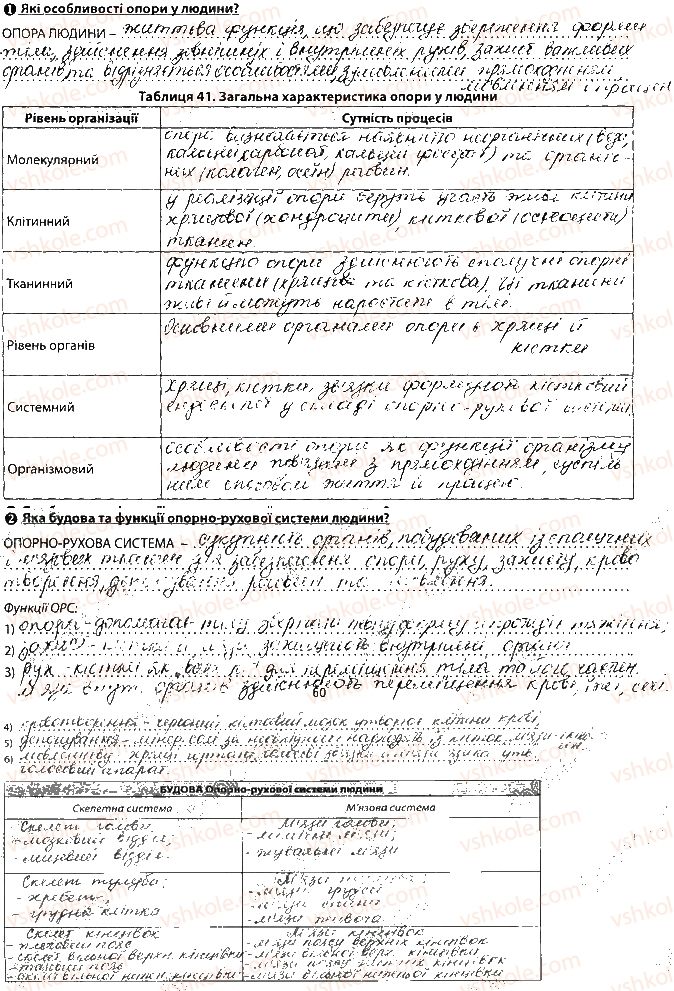 ❶ Які особливості опори у людини?
ОПОРА ЛЮДИНИ – життєва функція, що забезпечує збереження форми
тіла, здійснення зовнішніх і внутрішніх рухів, захист важливих
органів, та відрізняється особливостями, зумовленими прямоходінням,
мовленням і працею
Таблиця 41. Загальна характеристика опори у людини
Рівень організації Сутність процесів
Молекулярний
опора визначається наявністю неорганічних (вода,
кальцій карбонат, кальцій фосфат) та органіч-
них (колаген, осеїн) речовин.
Клітинний
у реалізації опори беруть участь живі клітини
хрящової (хондроцити), кісткової (остеоцити)
тканин.
Тканинний
функцію опори здійснюють сполучні опорні
тканини (хрящова та кісткова). Ці тканини
живі й можуть наростати в тілі.
Рівень органів
Основними органами опори є хрящі й
кістки
Системний
Хрящі, кістки, зв'язки формують кістковий
у складі опорно-рухової системи
Організмовий
особливості опори як функції організму
людини пов'язані з прямоходінням, суспіль
ним способом життя й працею.
❷ Яка будова та функції опорно-рухової системи людини?
ОПОРНО-РУХОВА СИСТЕМА – сукупність органів, побудованих із сполучних
і м'язових тканин для забезпечення опори, руху, захисту, крово
творення, депонування речовин та мовлення.
Функції ОРС:
1) опора - допомагає тілу зберігати певну форму і протидіє тяжінню;
2) захист - кістки й м'язи захищають внутрішні органи
3) рух - кістки як важелі для переміщення тіла та його частин.
М'язи внутр. органів здійснюють переміщення крові, їжі, сечі.
60
4) кровотворення - червоний кістковий мозок утворює клітини крові;
5) депонування - мінер. солі за необхідності надходять із кісток, м'язи -
6) мовлення - хрящі гортані, голосові зв'язки, м'язи язика утв.
голосовий апарат.
БУДОВА Опорно-рухової системи людини
Скелетна система М'язова система
Скелет голови:
- мозковий відділ;
- лицевий відділ.
М'язи голови:
- мімічні м'язи;
- жувальні м'язи
Скелет тулуба:
- хребет;
- грудна клітка
М'язи тулуба:
- м'язи грудей
- м'язи спини
- м'язи живота
Скелет кінцівок
- плечовий пояс
- скелет вільної верхн. кінцівки
- тазовий пояс
- скелет вільної нижн. кінцівки
М'язи кінцівок
- м'язи поясу верхніх кінцівок
- м'язи вільної верх. кінцівки
- м'язи поясу нижніх кінцівок
- м'язи вільної нижньої кінцівки
vshkole.com